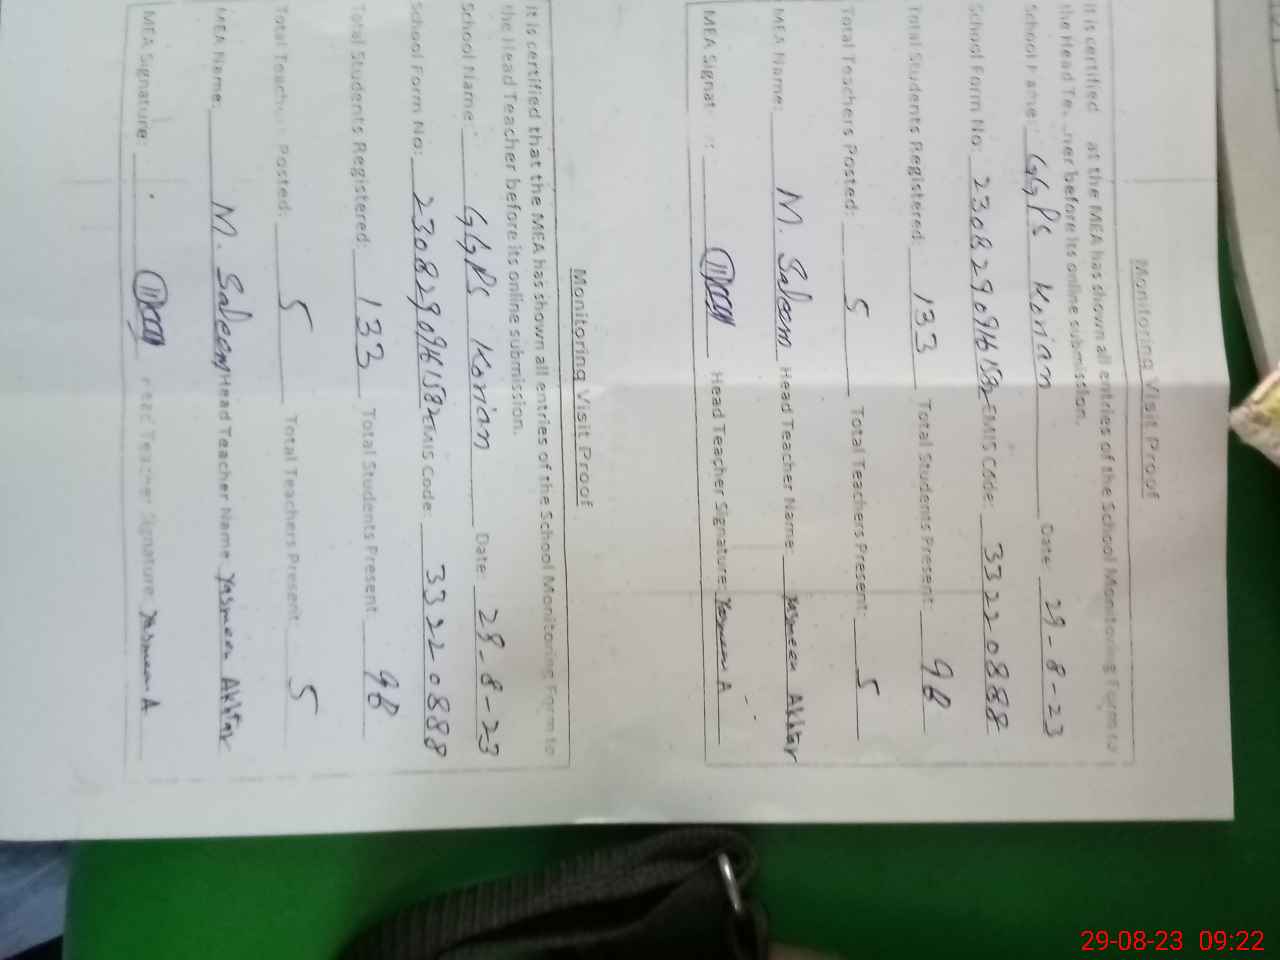 Monitoring Visit Proof
It is certified at the MEA has shown all entries of the School Monitoring Form to
the Head before its online submission.
School Name: GGPS Korian Date: 29-8-23
School Form No: 23082909161582 EMIS Code: 33220888
Total Students Registered: 133 Total Students Present: 98
Total Teachers Posted: 5 Total Teachers Present: 5
MEA Name: M. Saleem Head Teacher Name: Yasmeen Akhtar
MEA Signat Head Teacher Signature: Yasmeen A
Monitoring Visit Proof
It is certified that the MEA has shown all entries of the School Monitoring Form to
the Head Teacher before its online submission.
School Name: GGPS Korian Date: 29-8-23
School Form No: 23082909161582 EMIS Code: 33220888
Total Students Registered: 133 Total Students Present 98
Total Teachers Posted: 5 Total Teachers Present: 5
MEA Name: M. Saleem Head Teacher Name Yasmeen Akhtar
MEA Signature: Head Teacher Signature: Yasmeen A
29-08-23 09:22